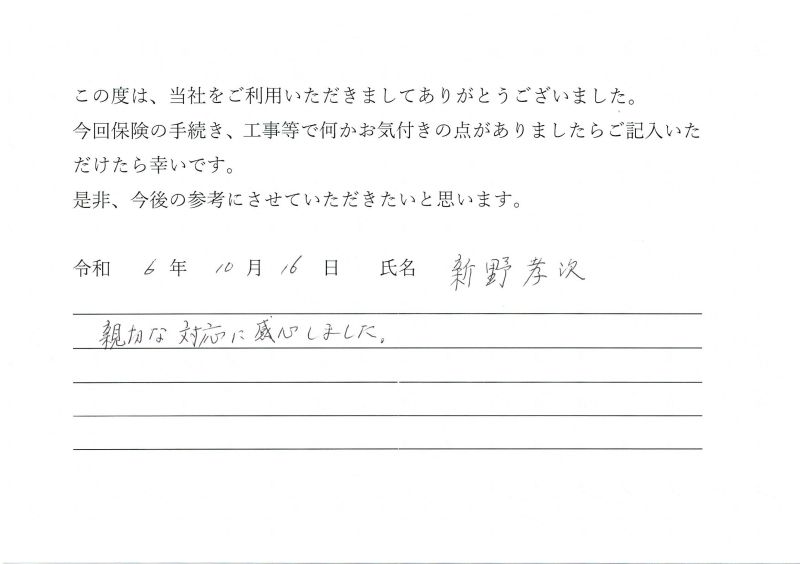 この度は、当社をご利用いただきましてありがとうございました。
今回保険の手続き、工事等で何かお気付きの点がありましたらご記入いた
だけたら幸いです。
是非、今後の参考にさせていただきたいと思います。
令和 6 年 10 月 16 日 氏名 新野孝次
親切な対応に感心しました。